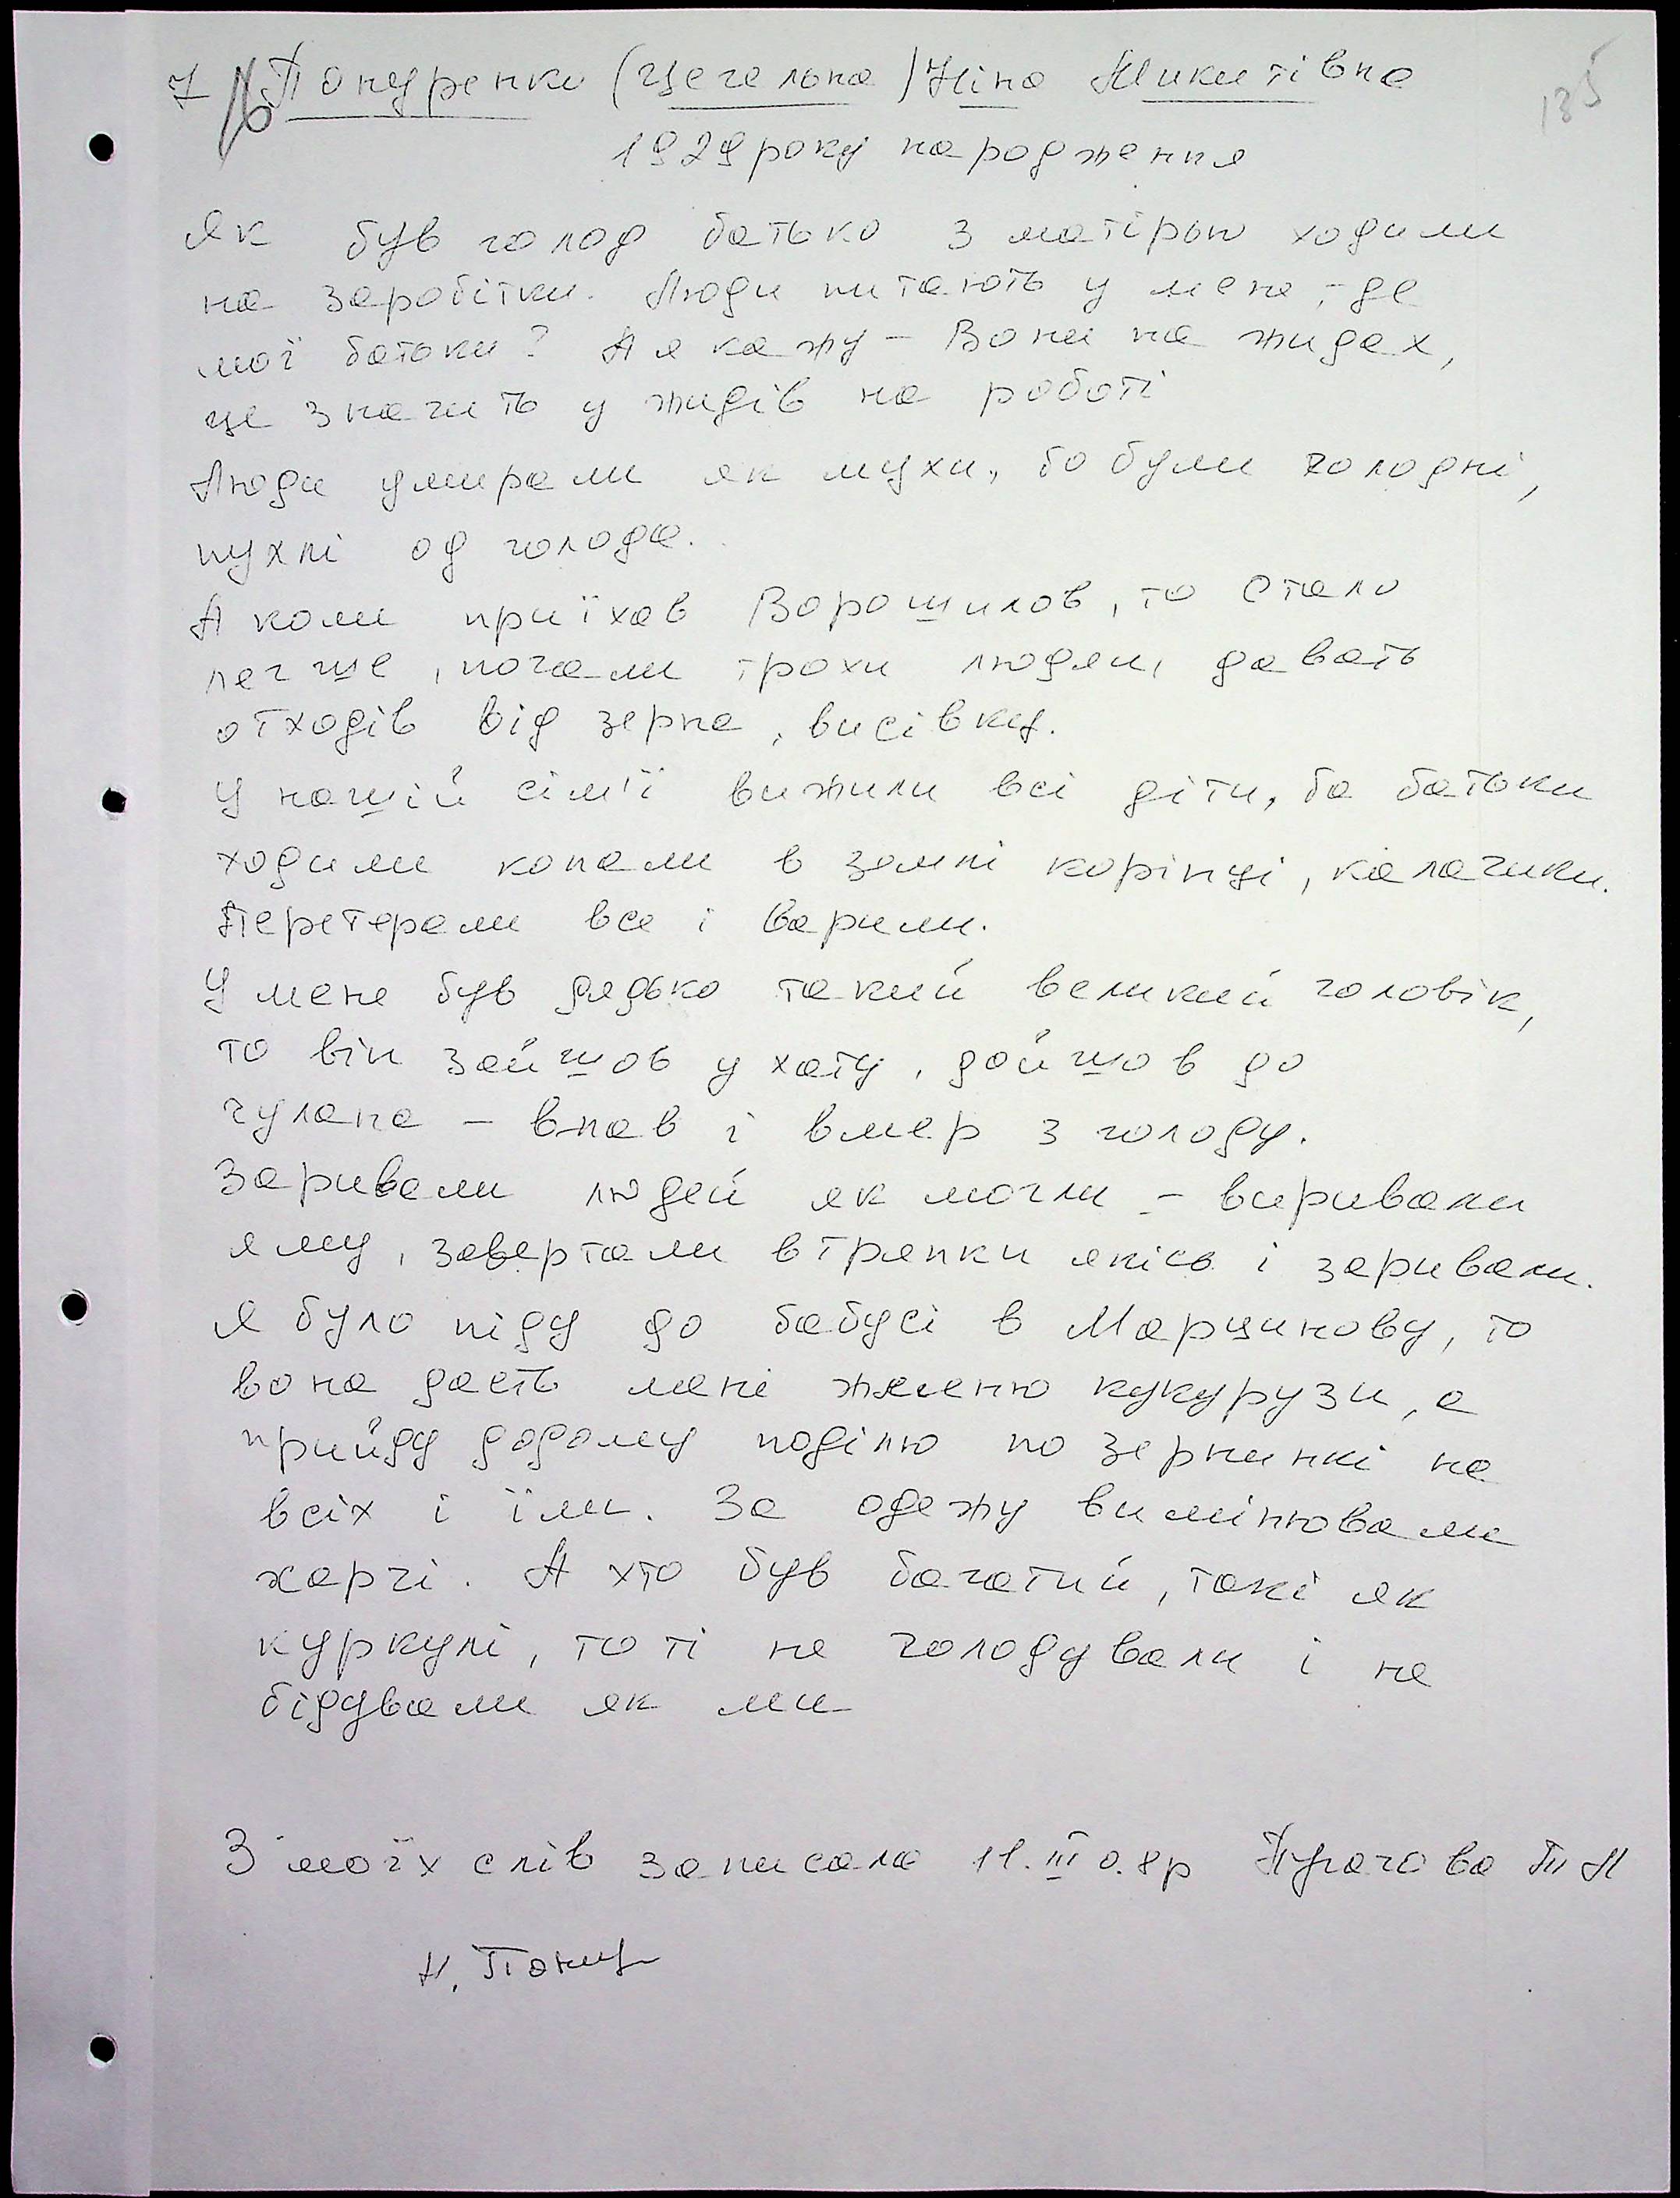 7 Понуренко (Цегельна) Ніна Микитівна
135
1929 року народження
Як був голод батько з матірью ходили
на заробітки. Люди питають у мене, - де
мої батьки? А я кажу - Вони на жидах,
це значить у жидів на роботі
Люди умирали як мухи, бо були голодні,
пухлі од голода.
А коли приїхав Ворошилов, то стало
легше, почали трохи людям давать
отходів від зерна, висівку.
У нашій сім'ї вижили всі діти, бо батьки
ходили копали в землі корінці, калачики.
Перетерали все і варили.
У мене був дядько такий великий чоловік,
то він зайшов у хату, дойшов до
чулана - впав і вмер з голоду.
Заривали людей як могли - виривали
яму, завертали в тряпки якісь і заривали.
Я було піду до бабусі в Марцинову, то
вона дасть мені жменю кукурузи, а
прийду додому поділю по зернинкі на
всіх і їли. За одежу вимінювали
харчі. А хто був багатий, такі як
куркулі, то ті не голодували і не
бідували як ми
З моїх слів записала 11.III 0.8р Пугачова
Н. Понур